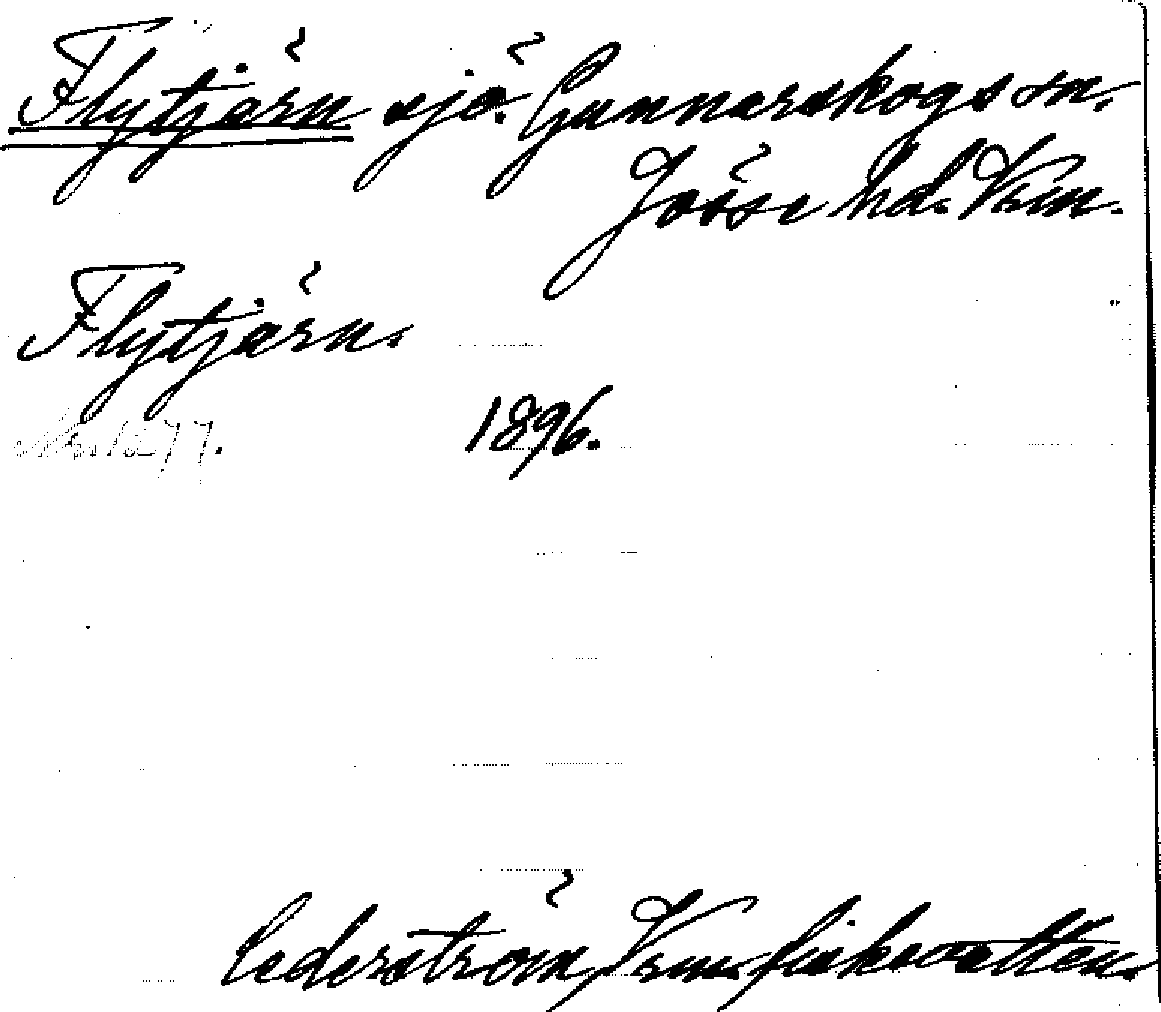 Flytjärn sjö. Gunnarskogs sn.
Jösse hd. Vrm.
Flytjärn.
Nr. 1277. 1896.
Cederström, Vrm. fiskevatten.